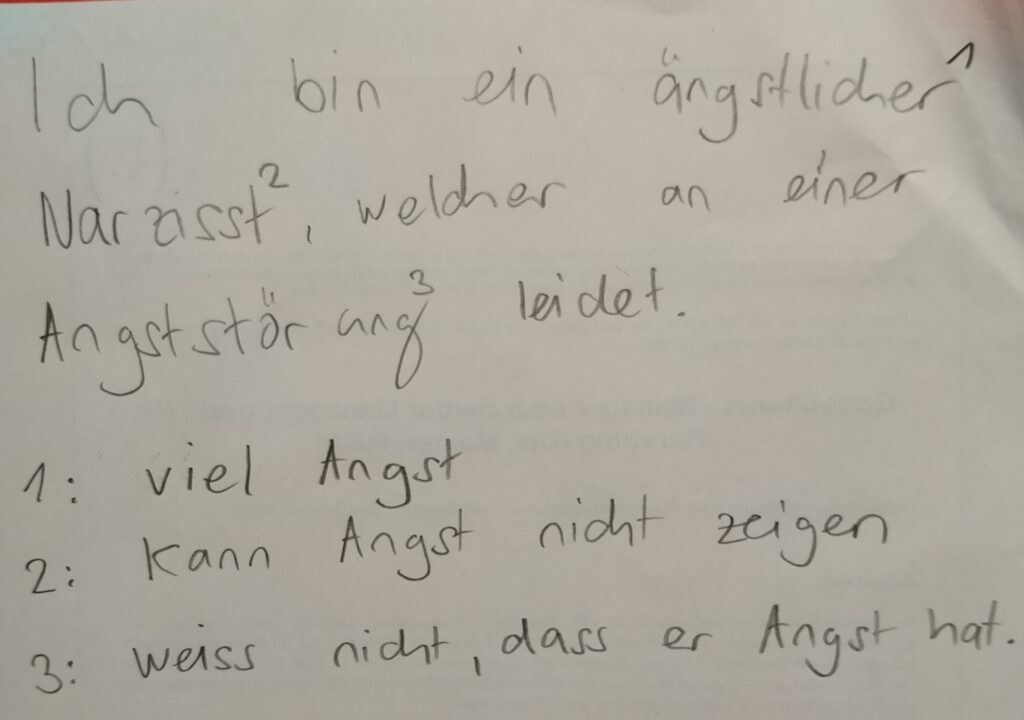 Ich bin ein ängstlicher¹
Narzisst², welcher an einer
Angststörung³ leidet.
1: viel Angst
2: Kann Angst nicht zeigen
3: weiss nicht, dass er Angst hat.